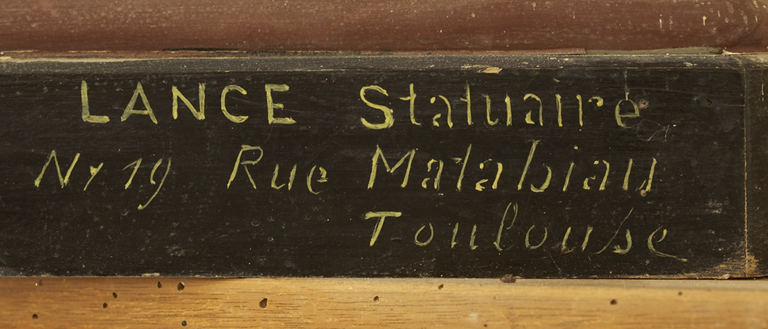 LANCE Statuaire
Nº 19 Rue Matabiau
Toulouse